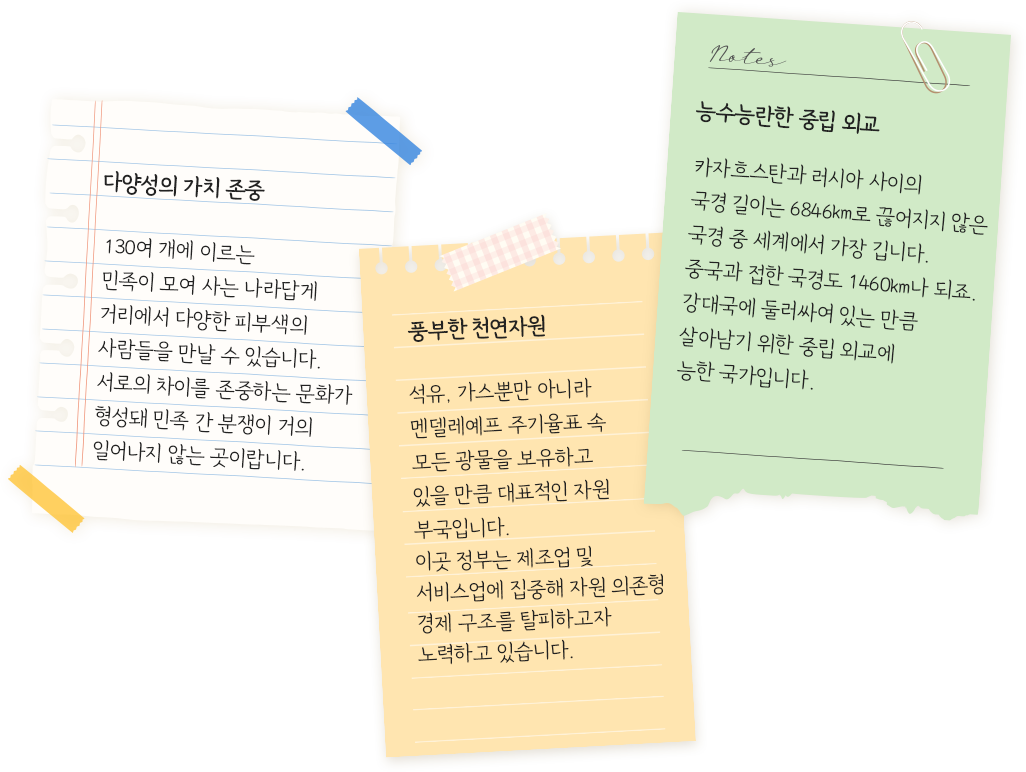 다양성의 가치 존중
130여 개에 이르는
민족이 모여 사는 나라답게
거리에서 다양한 피부색의
사람들을 만날 수 있습니다.
서로의 차이를 존중하는 문화가
형성돼 민족 간 분쟁이 거의
일어나지 않는 곳이랍니다.
풍부한 천연자원
석유, 가스뿐만 아니라
멘델레예프 주기율표 속
모든 광물을 보유하고
있을 만큼 대표적인 자원
부국입니다.
이곳 정부는 제조업 및
서비스업에 집중해 자원 의존형
경제 구조를 탈피하고자
노력하고 있습니다.
Notes
능수능란한 중립 외교
카자흐스탄과 러시아 사이의
국경 길이는 6846km로 끊어지지 않은
국경 중 세계에서 가장 깁니다.
중국과 접한 국경도 1460km나 되죠.
강대국에 둘러싸여 있는 만큼
살아남기 위한 중립 외교에
능한 국가입니다.